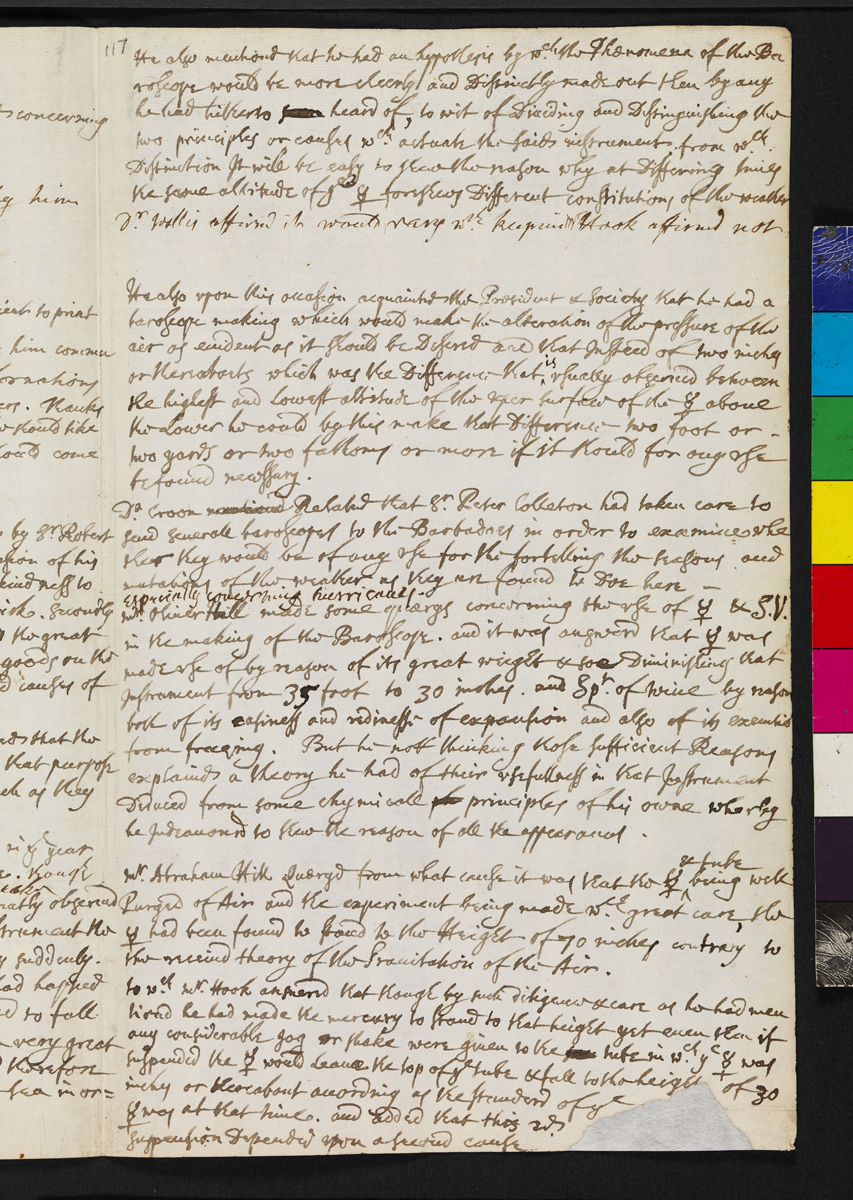 s concerning
y him
ient to print
him commu
formations
ers. Thanks
should like
could come
by Sr. Robert
ation of his
kindness to
secondly
the great
goods on the
d causes of
nds that the
that purpose
ch as they
in ye year
Hough
eatly observed
strument the
y suddenly.
had happed
ed to fall
very great
therefore
sea in or=
117
He also mentiond that he had an hypothesis by wch. the Phænomena of the Ba
roscope would be more cleerly and Distinctly made out then by any
he had hitherto heard of, to wit of Dividing and Distinguishing the
two principles or causes wch actuate the said instrument. from wch.
Distinction It will be easy to shew the reason why at Differing times
the same altitude of ye ☿ foreshews Different constitutions of the weather
Dr. Wallis affirmd it would vary wth keeping Hook affirmd not
He also vpon this occasion acquainted the President & Society that he had a
baroscope making which would make the alteration of the pressure of the
air as euident as it should be Desired and that Instead of two inches
or thereabouts which was the Difference that is vsually obserued between
the highest and Lowest altitude of the vper surface of the ☿ aboue
the Lower he could by this make that Difference two foot or -
two yards or two fathoms or more if it should for any vse
be found necessary.
Dr. Croon Related that Sr. Peter Colleton had taken care to
send seuerall baroscopes to the Barbadoes in order to examine whe
ther they would be of any vse for the fortelling the seasons and
mutations of the weather as they are found to Doe here -
especially concerning hurricanes.
mr. Oliuer Hill made some quærys concerning the vse of ☿ & S.V.
in the making of the Baroscope. and it was answerd that ☿ was
made vse of by reason of its great weight & soe Diminishing that
Instrument from 35 foot to 30 inches. and Spt. of wine by reason
both of its easiness and rediness of expansion and also of its
from freezing. But he nott thinking those sufficient Reasons
explaind a theory he had of their vsefullness in that Instrument
Deduced from some chymicall principles of his owne wherby
he Indeauourd to shew the reason of all the appearances.
& tube
mr. Abraham Hill Quæryd from what cause it was that the ☿ being well
Purged of Air and the experiment being made wth great care, the
☿ had been found to stand to the Height of 70 inches contrary to
the receiud theory of the Grauitation of the Air.
to wch mr. Hook answerd that though by such diligence & care as he had men
tiond he had made the mercury to stand to that height yet euen then if
any considerable jog or shake were giuen to the tube in wch ye ☿ was
suspended the ☿ would Leaue the top of ye tube & fall to the height of 30
inches or thereabout according as the standerd of ye
☿ was at that time. and added that this
suspension Depended vpon a second cause